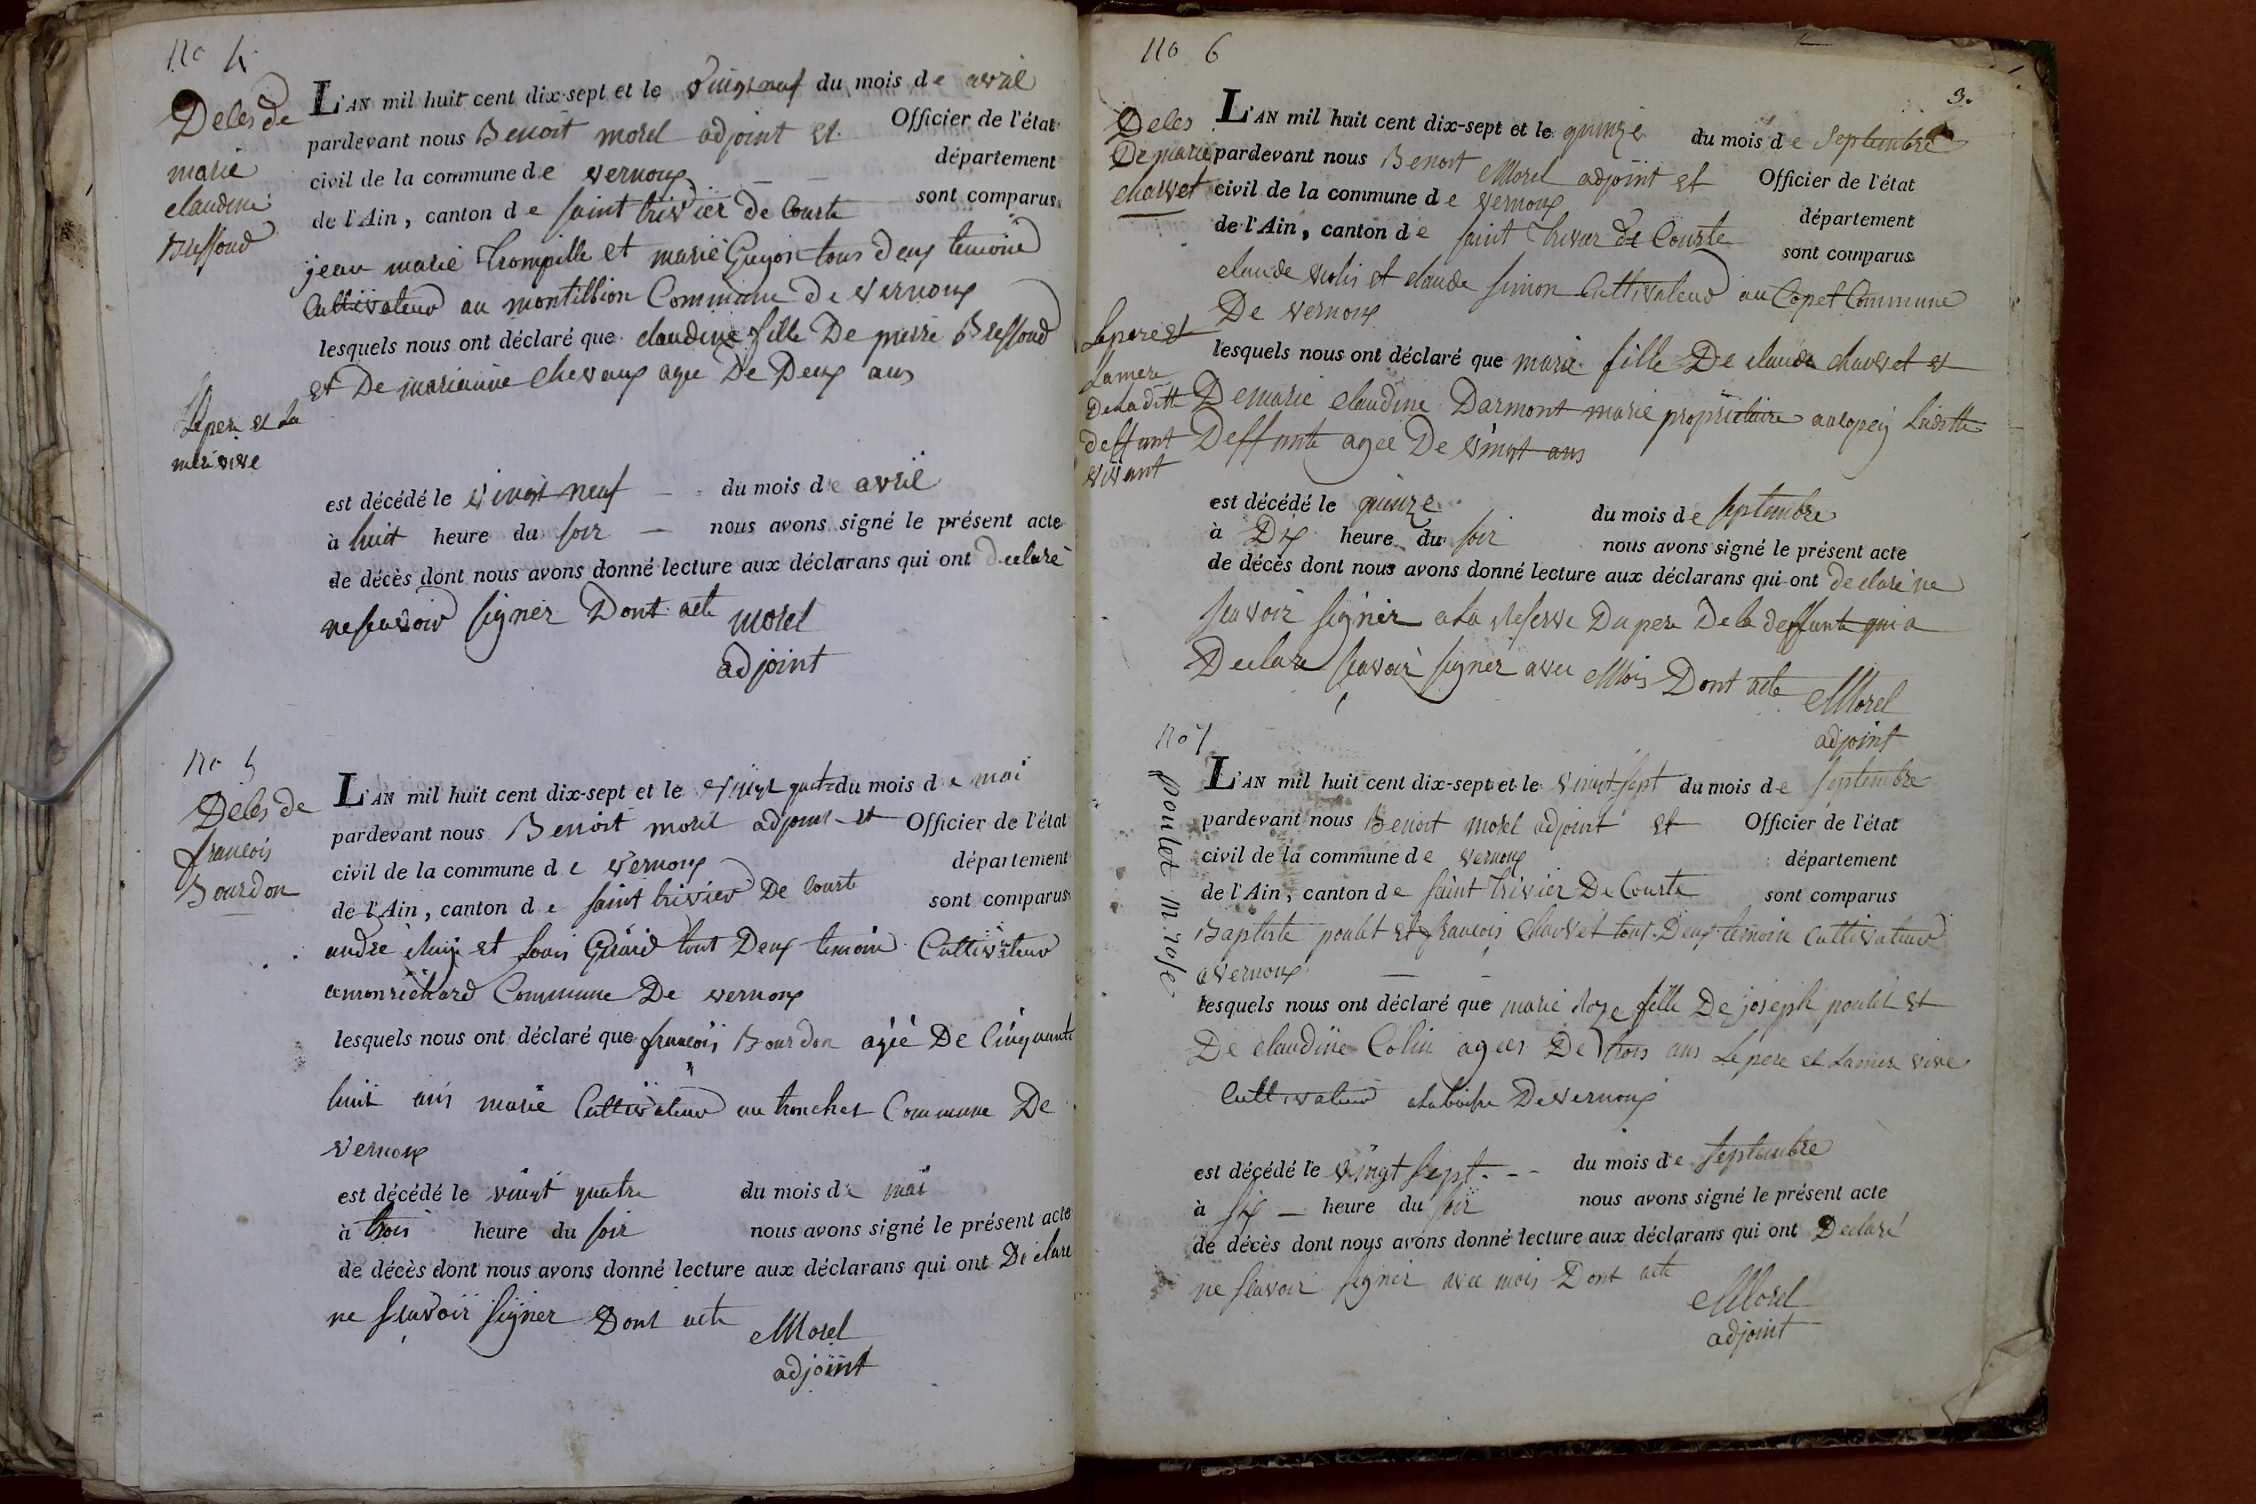 no 4
Deces de
marie
claudine
Bressoud
L'AN mil huit cent dix-sept et le vingt neuf du mois de avril
pardevant nous Benoit morel adjoint et Officier de l'état
civil de la commune de vernoux département
de l'Ain, canton de saint trivier De Courte sont comparus
jean marie Trompille et marie Guyon tous deux temoin
Cultivateur au montillion Commune De vernoux
lesquels nous ont déclaré que claudine fille De pierre Bressoud
et De marianne Chevaux agee De Deux ans
Le pere et La
mere vive
est décédé le vingt neuf du mois de avril
à huit heure du soir nous avons signé le présent acte
de décès dont nous avons donné lecture aux déclarans qui ont declaré
ne scavoir signer Dont acte morel
adjoint
no 5
Deces de
francois
Bourdon
L'AN mil huit cent dix-sept et le vingt quatre du mois de mai
pardevant nous Benoit morel adjoint et Officier de l'état
civil de la commune de vernoux département
de l'Ain, canton de saint trivier De Courte sont comparus
andré et Louis tout Deux temoin Cultivateur
a monrichard Commune De vernoux
lesquels nous ont déclaré que francois Bourdon agée De Cinquante
huit ans marie Cultivateur au tronchet Commune De
vernoux
est décédé le vingt quatre du mois de mai
à trois heure du soir nous avons signé le présent acte
de décès dont nous avons donné lecture aux déclarans qui ont Declaré
ne scavoir signer Dont acte Morel
adjoint
no 6
3.
Deces
De marie
chavvet
L'AN mil huit cent dix-sept et le quinze du mois de Septembre
pardevant nous Benoit Morel adjoint et Officier de l'état
civil de la commune de vernoux département
de l'Ain, canton de saint Trivier de Courte sont comparus
claude et claude simon Cultivateur au Copet Commune
De vernoux
lesquels nous ont déclaré que marie fille De claude chavvet et
De marie claudine Darmont marie propriétaire
Deffunte agee De vingt ans
Le pere et
La mere
De La ditte
deffunt
vivant
est décédé le quinze du mois de septembre
à Dix heure du soir nous avons signé le présent acte
de décès dont nous avons donné lecture aux déclarans qui ont declaré ne
scavoir signer a La Reserve Du pere De la deffunte qui a
Declare scavoir signer avec Mois Dont acte Morel
adjoint
no 7
poulet m. rose
L'AN mil huit cent dix-sept et le vingt sept du mois de septembre
pardevant nous Benoit morel adjoint et Officier de l'état
civil de la commune de vernoux département
de l'Ain, canton de saint trivier De Courte sont comparus
Baptiste poulet et francois Chavvet tout Deux temoin Cultivateur
a vernoux
lesquels nous ont déclaré que marie Roze fille De joseph poulet et
De claudine Colin agees De trois ans Le pere et La mere vive
Cultivateur De vernoux
est décédé le vingt sept du mois de septembre
à six heure du soir nous avons signé le présent acte
de décès dont nous avons donné lecture aux déclarans qui ont Declaré
ne scavoir signer avec mois Dont acte Morel
adjoint